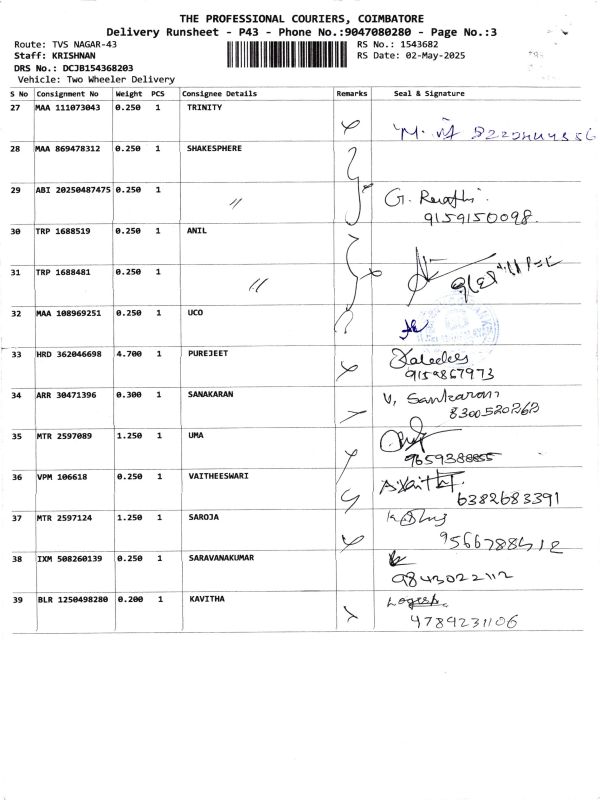 THE PROFESSIONAL COURIERS, COIMBATORE
Delivery Runsheet - P43 - Phone No.:9047080280 - Page No.:3
Route: TVS NAGAR-43 RS No.: 1543682
Staff: KRISHNAN RS Date: 02-May-2025
DRS No.: DCJB154368203
Vehicle: Two Wheeler Delivery
S No Consignment No Weight PCS Consignee Details Remarks Seal & Signature
27 MAA 111073043 0.250 1 TRINITY
28 MAA 869478312 0.250 1 SHAKESPHERE
29 ABI 20250487475 0.250 1 〃 G. Revathi.
9159150098.
30 TRP 1688519 0.250 1 ANIL
31 TRP 1688481 0.250 1 〃
32 MAA 108969251 0.250 1 UCO
33 HRD 362046698 4.700 1 PUREJEET
9159867973
34 ARR 30471396 0.300 1 SANAKARAN V, Sankaran
8300520262
35 MTR 2597089 1.250 1 UMA
9659388855
36 VPM 106618 0.250 1 VAITHEESWARI A.Vaithi
6382683391
37 MTR 2597124 1.250 1 SAROJA
9566788412
38 IXM 508260139 0.250 1 SARAVANAKUMAR
9843022112
39 BLR 1250498280 0.200 1 KAVITHA Logesh
4789231106